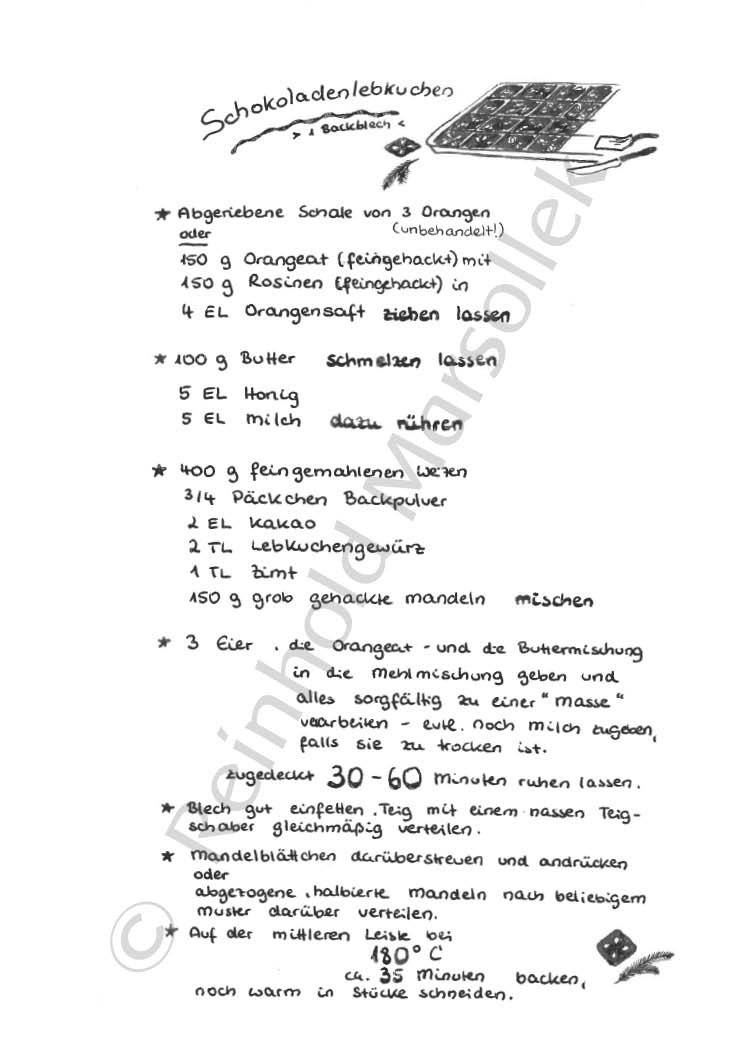 Schokoladenlebkuchen
> 1 Backblech <
* Abgeriebene Schale von 3 Orangen
oder (unbehandelt!)
150 g Orangeat (feingehackt) mit
150 g Rosinen (feingehackt) in
4 EL Orangensaft ziehen lassen
* 100 g Butter schmelzen lassen
5 EL Honig
5 EL Milch dazu rühren
* 400 g feingemahlenen Weizen
3/4 Päckchen Backpulver
2 EL Kakao
2 TL Lebkuchengewürz
1 TL Zimt
150 g grob gehackte Mandeln mischen
* 3 Eier, die Orangeat- und die Buttermischung
in die Mehlmischung geben und
alles sorgfältig zu einer "Masse"
verarbeiten - evtl. noch Milch zugeben,
falls sie zu trocken ist.
zugedeckt 30-60 Minuten ruhen lassen.
* Blech gut einfetten. Teig mit einem nassen Teig-
schaber gleichmäßig verteilen.
* Mandelblättchen darüberstreuen und andrücken
oder
abgezogene, halbierte Mandeln nach beliebigem
Muster darüber verteilen.
* Auf der mittleren Leiste bei
180° C
ca. 35 Minuten backen,
noch warm in Stücke schneiden.
© Reinhold Marsollek